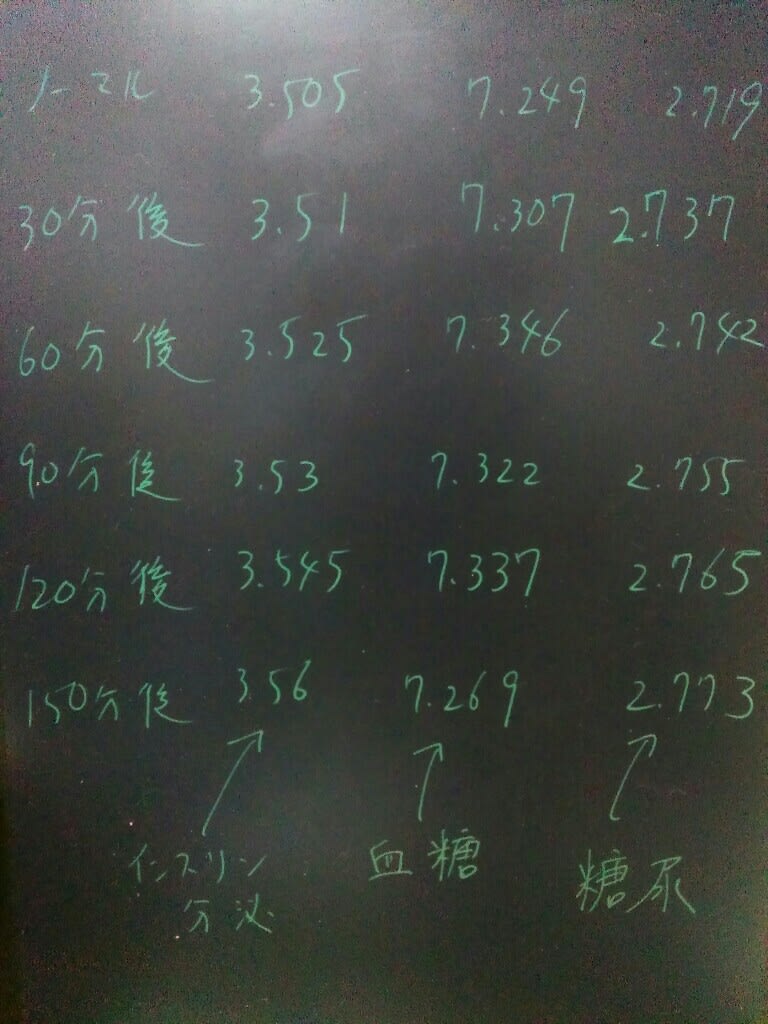 ノーマル 3.505 7.249 2.719
30分後 3.51 7.307 2.737
60分後 3.525 7.346 2.742
90分後 3.53 7.322 2.755
120分後 3.545 7.337 2.765
150分後 3.56 7.269 2.773
インスリン 血糖 糖尿
分泌